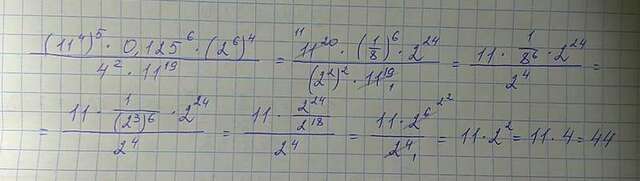 ((11⁴)⁵ · 0,125⁶ · (2⁶)⁴) / (4² · 11¹⁹) = (11²⁰ · (1/8)⁶ · 2²⁴) / ((2²)² · 11¹⁹) = (11 · 1/8⁶ · 2²⁴) / 2⁴ =
= (11 · 1/(2³)⁶ · 2²⁴) / 2⁴ = (11 · 2²⁴/2¹⁸) / 2⁴ = (11 · 2⁶) / 2⁴ = 11 · 2² = 11 · 4 = 44